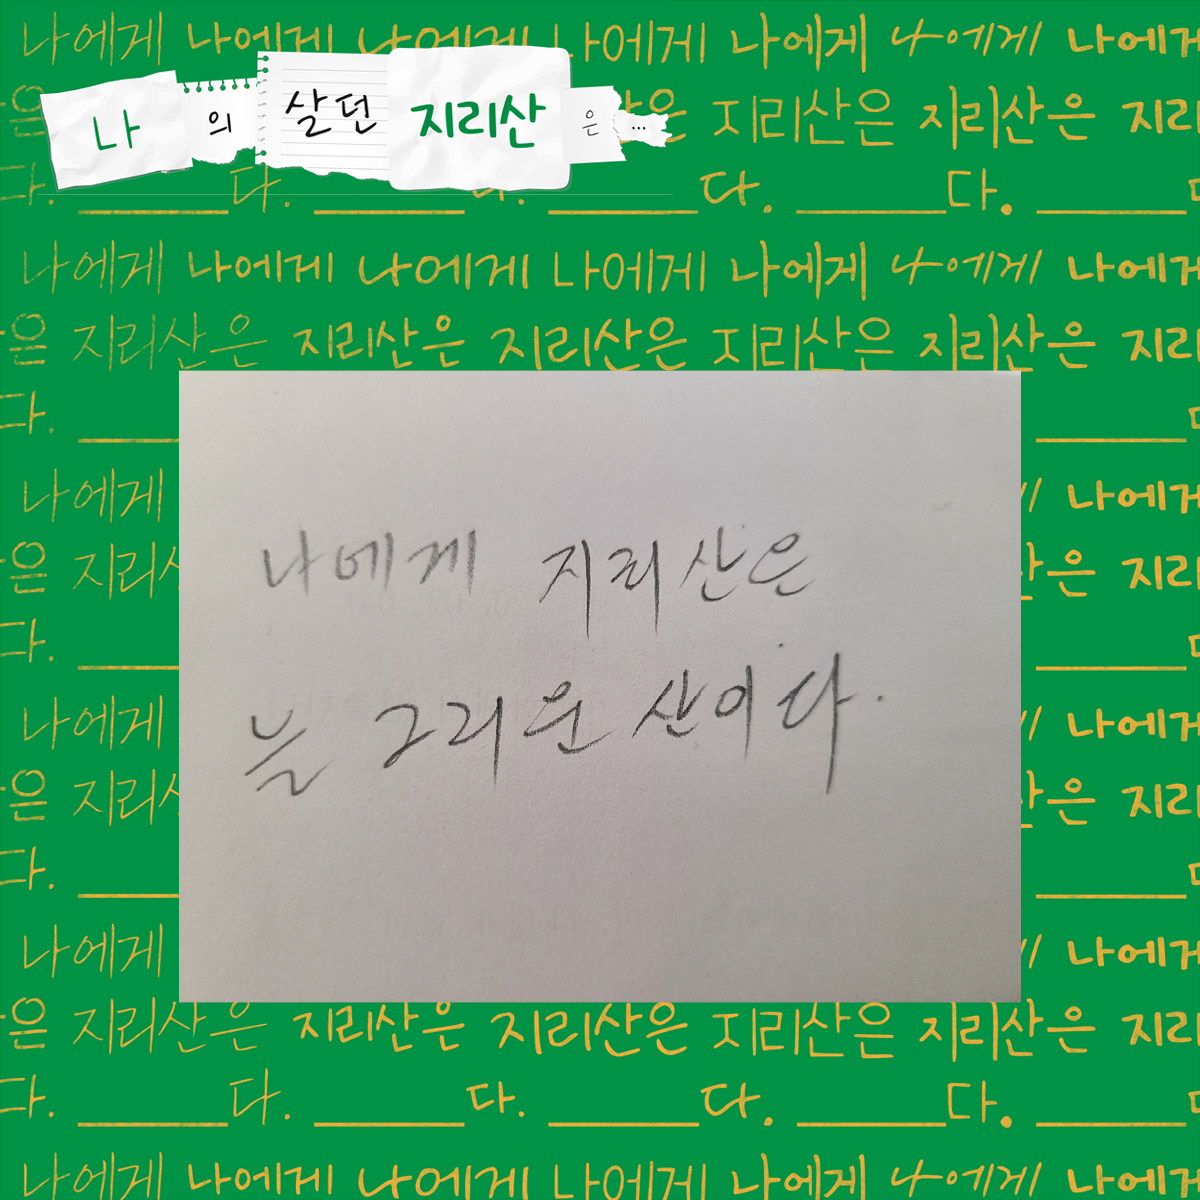 나에게 나에게 나에게 나에게 나에게 나에게 나에게
나의 살던 지리산은 ...
은 지리산은 지리산은 지리
다. ____다. ____다. ____다. ____다. ____
나에게 나에게 나에게 나에게 나에게 나에게 나에게
은 지리산은 지리산은 지리산은 지리산은 지리산은 지리
다. ____
나에게 나에게
나에게 지리산은
은 지리 은 지리
다. ____
늘 그리운 산이다.
나에게 나에게
은 지리 은 지리
다. ____
나에게 나에게
은 지리산은 지리산은 지리산은 지리산은 지리산은 지리
다. ____다. ____다. ____다. ____다. ____
나에게 나에게 나에게 나에게 나에게 나에게 나에게